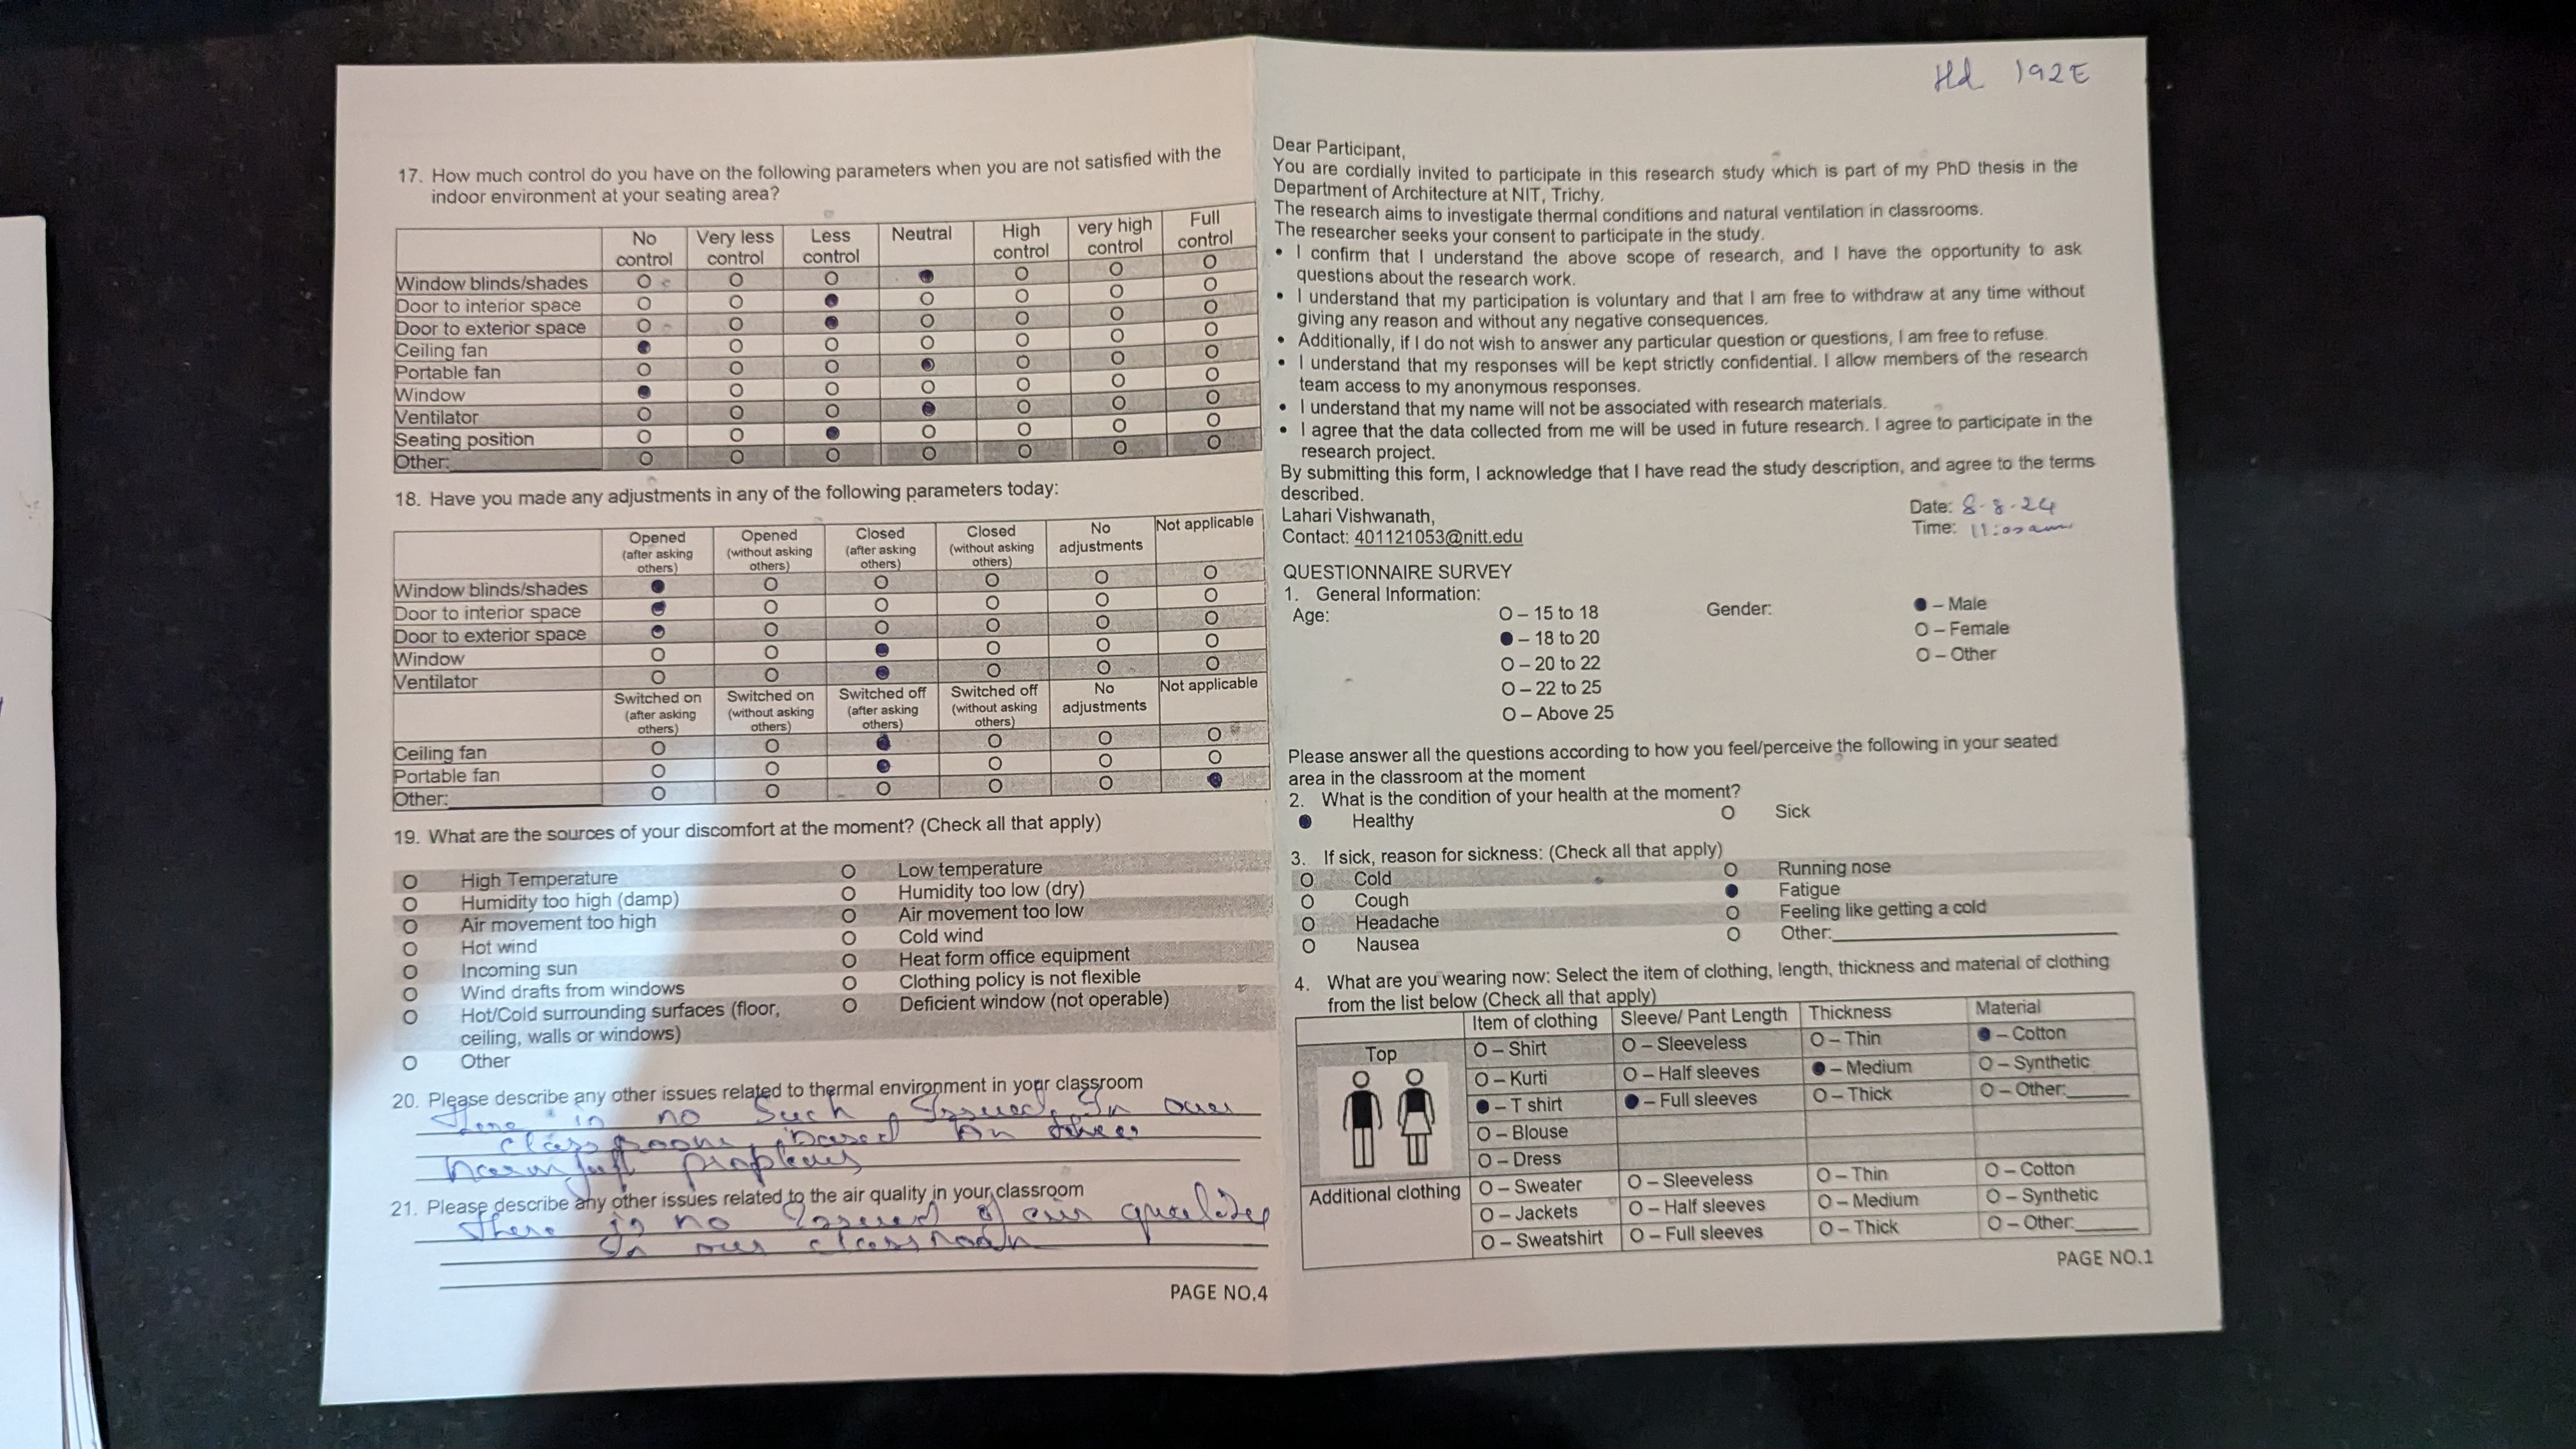 17. How much control do you have on the following parameters when you are not satisfied with the
indoor environment at your seating area?
No control Very less control Less control Neutral High control very high control Full control
Window blinds/shades O O O ● O O O
Door to interior space O O ● O O O O
Door to exterior space O O ● O O O O
Ceiling fan ● O O O O O O
Portable fan O O O ● O O O
Window ● O O O O O O
Ventilator O O O ● O O O
Seating position O O ● O O O O
Other: O O O O O O O
18. Have you made any adjustments in any of the following parameters today:
Opened (after asking others) Opened (without asking others) Closed (after asking others) Closed (without asking others) No adjustments Not applicable
Window blinds/shades ● O O O O O
Door to interior space ● O O O O O
Door to exterior space ● O O O O O
Window O O ● O O O
Ventilator O O ● O O O
Switched on (after asking others) Switched on (without asking others) Switched off (after asking others) Switched off (without asking others) No adjustments Not applicable
Ceiling fan O O ● O O O
Portable fan O O ● O O O
Other: O O O O O ●
19. What are the sources of your discomfort at the moment? (Check all that apply)
O High Temperature O Low temperature
O Humidity too high (damp) O Humidity too low (dry)
O Air movement too high O Air movement too low
O Hot wind O Cold wind
O Incoming sun O Heat form office equipment
O Wind drafts from windows O Clothing policy is not flexible
O Hot/Cold surrounding surfaces (floor, O Deficient window (not operable)
ceiling, walls or windows)
O Other
20. Please describe any other issues related to thermal environment in your classroom
no such Issued In our
classroom based
21. Please describe any other issues related to the air quality in your classroom
There is no Issued of air quality
In our classroom
PAGE NO.4
Hd 192E
Dear Participant,
You are cordially invited to participate in this research study which is part of my PhD thesis in the
Department of Architecture at NIT, Trichy.
The research aims to investigate thermal conditions and natural ventilation in classrooms.
The researcher seeks your consent to participate in the study.
• I confirm that I understand the above scope of research, and I have the opportunity to ask
questions about the research work.
• I understand that my participation is voluntary and that I am free to withdraw at any time without
giving any reason and without any negative consequences.
• Additionally, if I do not wish to answer any particular question or questions, I am free to refuse.
• I understand that my responses will be kept strictly confidential. I allow members of the research
team access to my anonymous responses.
• I understand that my name will not be associated with research materials.
• I agree that the data collected from me will be used in future research. I agree to participate in the
research project.
By submitting this form, I acknowledge that I have read the study description, and agree to the terms
described.
Lahari Vishwanath,
Contact: 401121053@nitt.edu
Date: 8-8-24
Time: 11:00am
QUESTIONNAIRE SURVEY
1. General Information:
Age: O – 15 to 18 Gender: ● – Male
● – 18 to 20 O – Female
O – 20 to 22 O – Other
O – 22 to 25
O – Above 25
Please answer all the questions according to how you feel/perceive the following in your seated
area in the classroom at the moment
2. What is the condition of your health at the moment?
● Healthy O Sick
3. If sick, reason for sickness: (Check all that apply)
O Cold O Running nose
O Cough ● Fatigue
O Headache O Feeling like getting a cold
O Nausea O Other:
4. What are you wearing now: Select the item of clothing, length, thickness and material of clothing
from the list below (Check all that apply)
Item of clothing Sleeve/ Pant Length Thickness Material
Top O – Shirt O – Sleeveless O – Thin ● – Cotton
O – Kurti O – Half sleeves ● – Medium O – Synthetic
● – T shirt ● – Full sleeves O – Thick O – Other:
O – Blouse
O – Dress
Additional clothing O – Sweater O – Sleeveless O – Thin O – Cotton
O – Jackets O – Half sleeves O – Medium O – Synthetic
O – Sweatshirt O – Full sleeves O – Thick O – Other:
PAGE NO.1